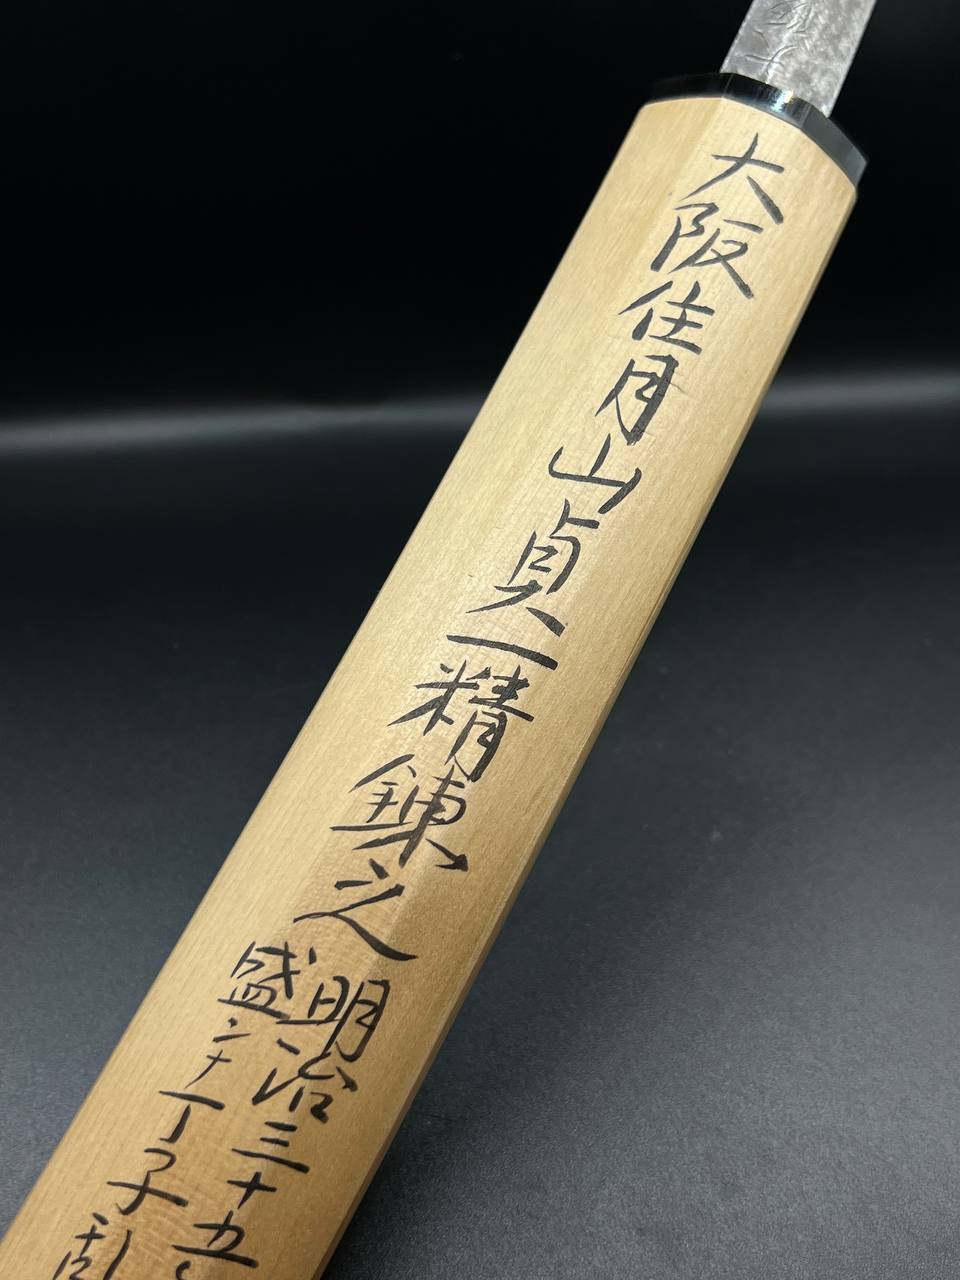 大阪住月山貞一精錬之
明治三十五
盛ンナ丁子乱